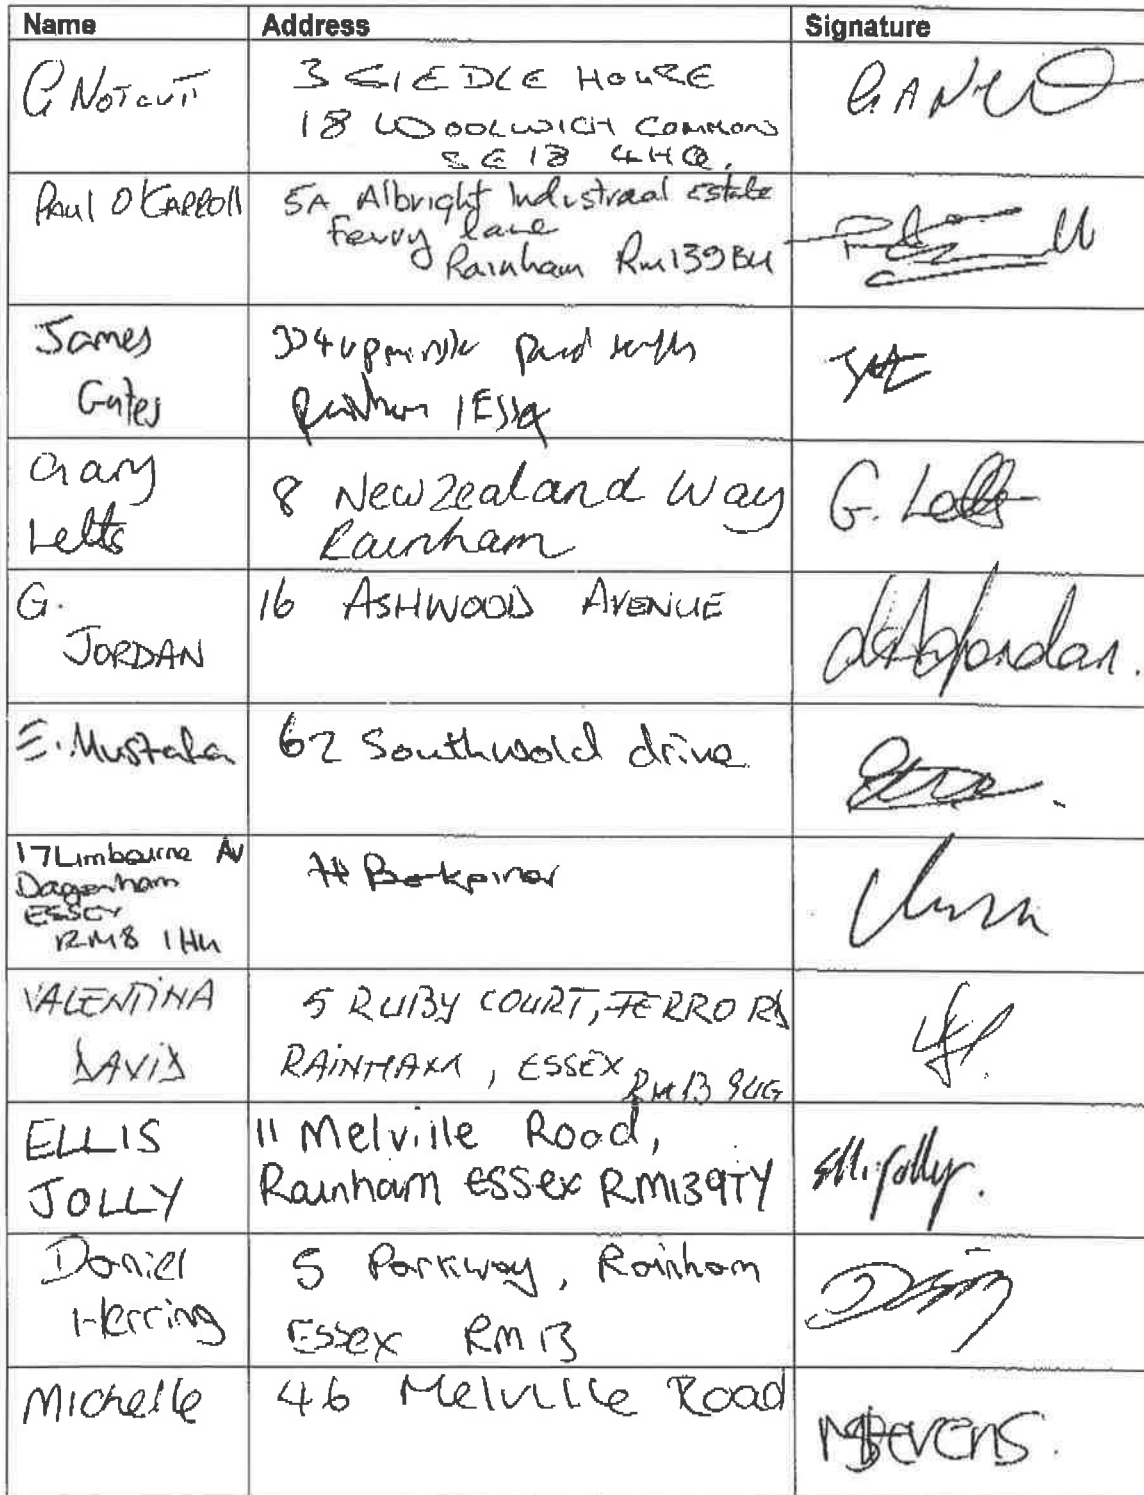 Name Address Signature
G Notcutt 3 SIEDLE HOUSE
18 WOOLWICH COMMON
SE18 4HQ.
PAUL O'CARROLL 5A Albright Industraal Estate
Ferry lane
Rainham Rm139BU
James
Gates
334 upminster road south
Rainham Essex
Gary
Letts
8 New Zealand Way
Rainham
G. Letts
G.
JORDAN
16 ASHWOOD AVENUE
Jordan.
E. Mustafa 62 Southwold drive
17 Limbourne Av
Dagenham
ESSEX
RM8 1HU
VALENTINA
DAVID
5 RUBY COURT, FERRO RD
RAINHAM, ESSEX RM13 9UG
ELLIS
JOLLY
11 Melville Road,
Rainham Essex RM139TY
Jolly.
Daniel
Herring
5 Parkway, Rainham
Essex RM13
Michelle 46 Melville Road
MStevens.